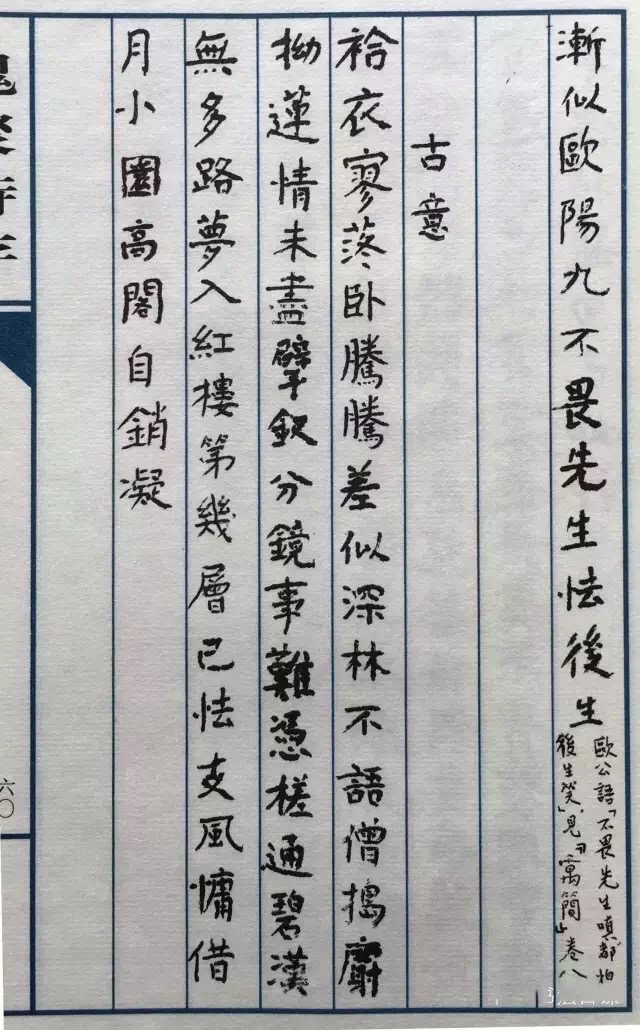 漸似歐陽九不畏先生怯後生
歐公語「不畏先生嗔卻怕
後生笑」,見『寓簡』卷八
古意
袷衣寥落臥騰騰差似深林不語僧搗麝
拗蓮情未盡擘釵分鏡事難憑槎通碧漢
無多路夢入紅樓第幾層已怯支風慵借
月小園高閣自銷凝
六〇